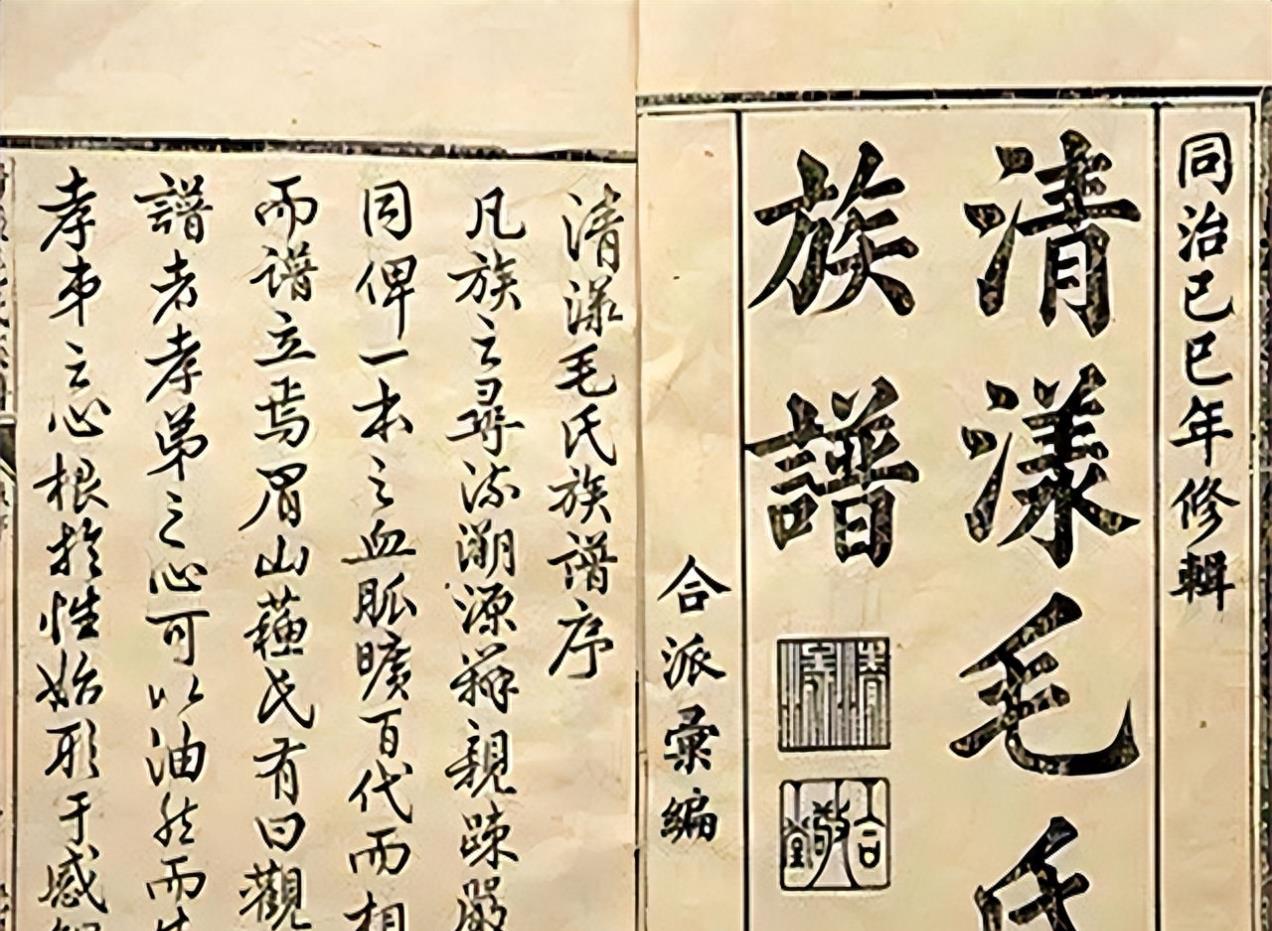 同治己巳年修輯
清漾毛氏
族譜
合派彙編
清漾毛氏族谱序
凡族之尋流溯源辨親疎嚴
同俾一本之血脈曠百代而相
而谱立焉眉山蘓氏有曰觀
譜者孝弟之心可以油然而生
孝弟之心根於性始形于感